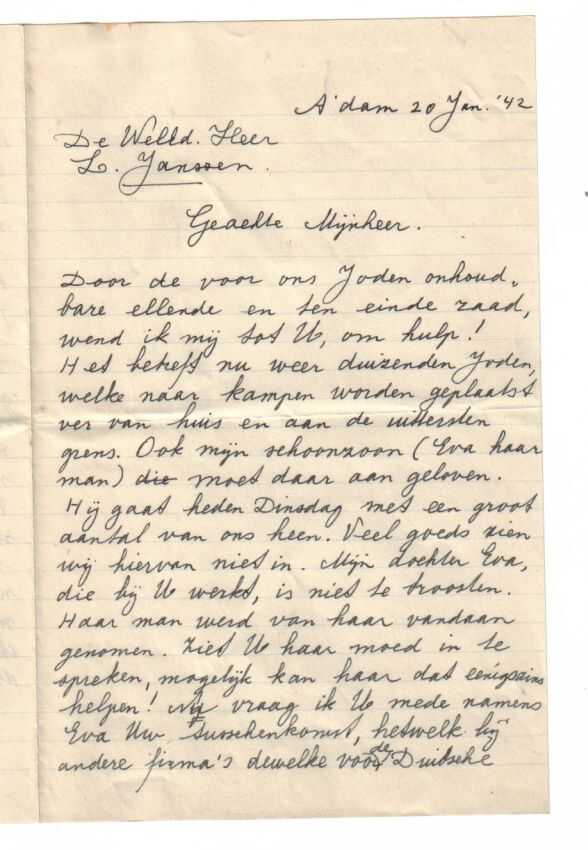 A'dam 20 Jan. '42
De Welld. Heer
L. Janssen.
Geachte Mijnheer.
Door de voor ons Joden onhoud„
bare ellende en ten einde raad,
wend ik mij tot U, om hulp!
Het betreft nu weer duizenden Joden,
welke naar kampen worden geplaatst
ver van huis en aan de uittersten
grens. Ook mijn schoonzoon (Eva haar
man) die moet daar aan geloven.
Hij gaat heden Dinsdag met een groot
aantal van ons heen. Veel goeds zien
wij hiervan niet in. Mijn dochter Eva,
die bij U werkt, is niet te troosten.
Haar man werd van haar vandaan
genomen. Ziet U haar moed in te
spreken, mogelijk kan haar dat eenigszins
helpen! Nu vraag ik U mede namens
Eva Uw tusschenkomst, hetwelk bij
andere firma's dewelke voor de Duitsche